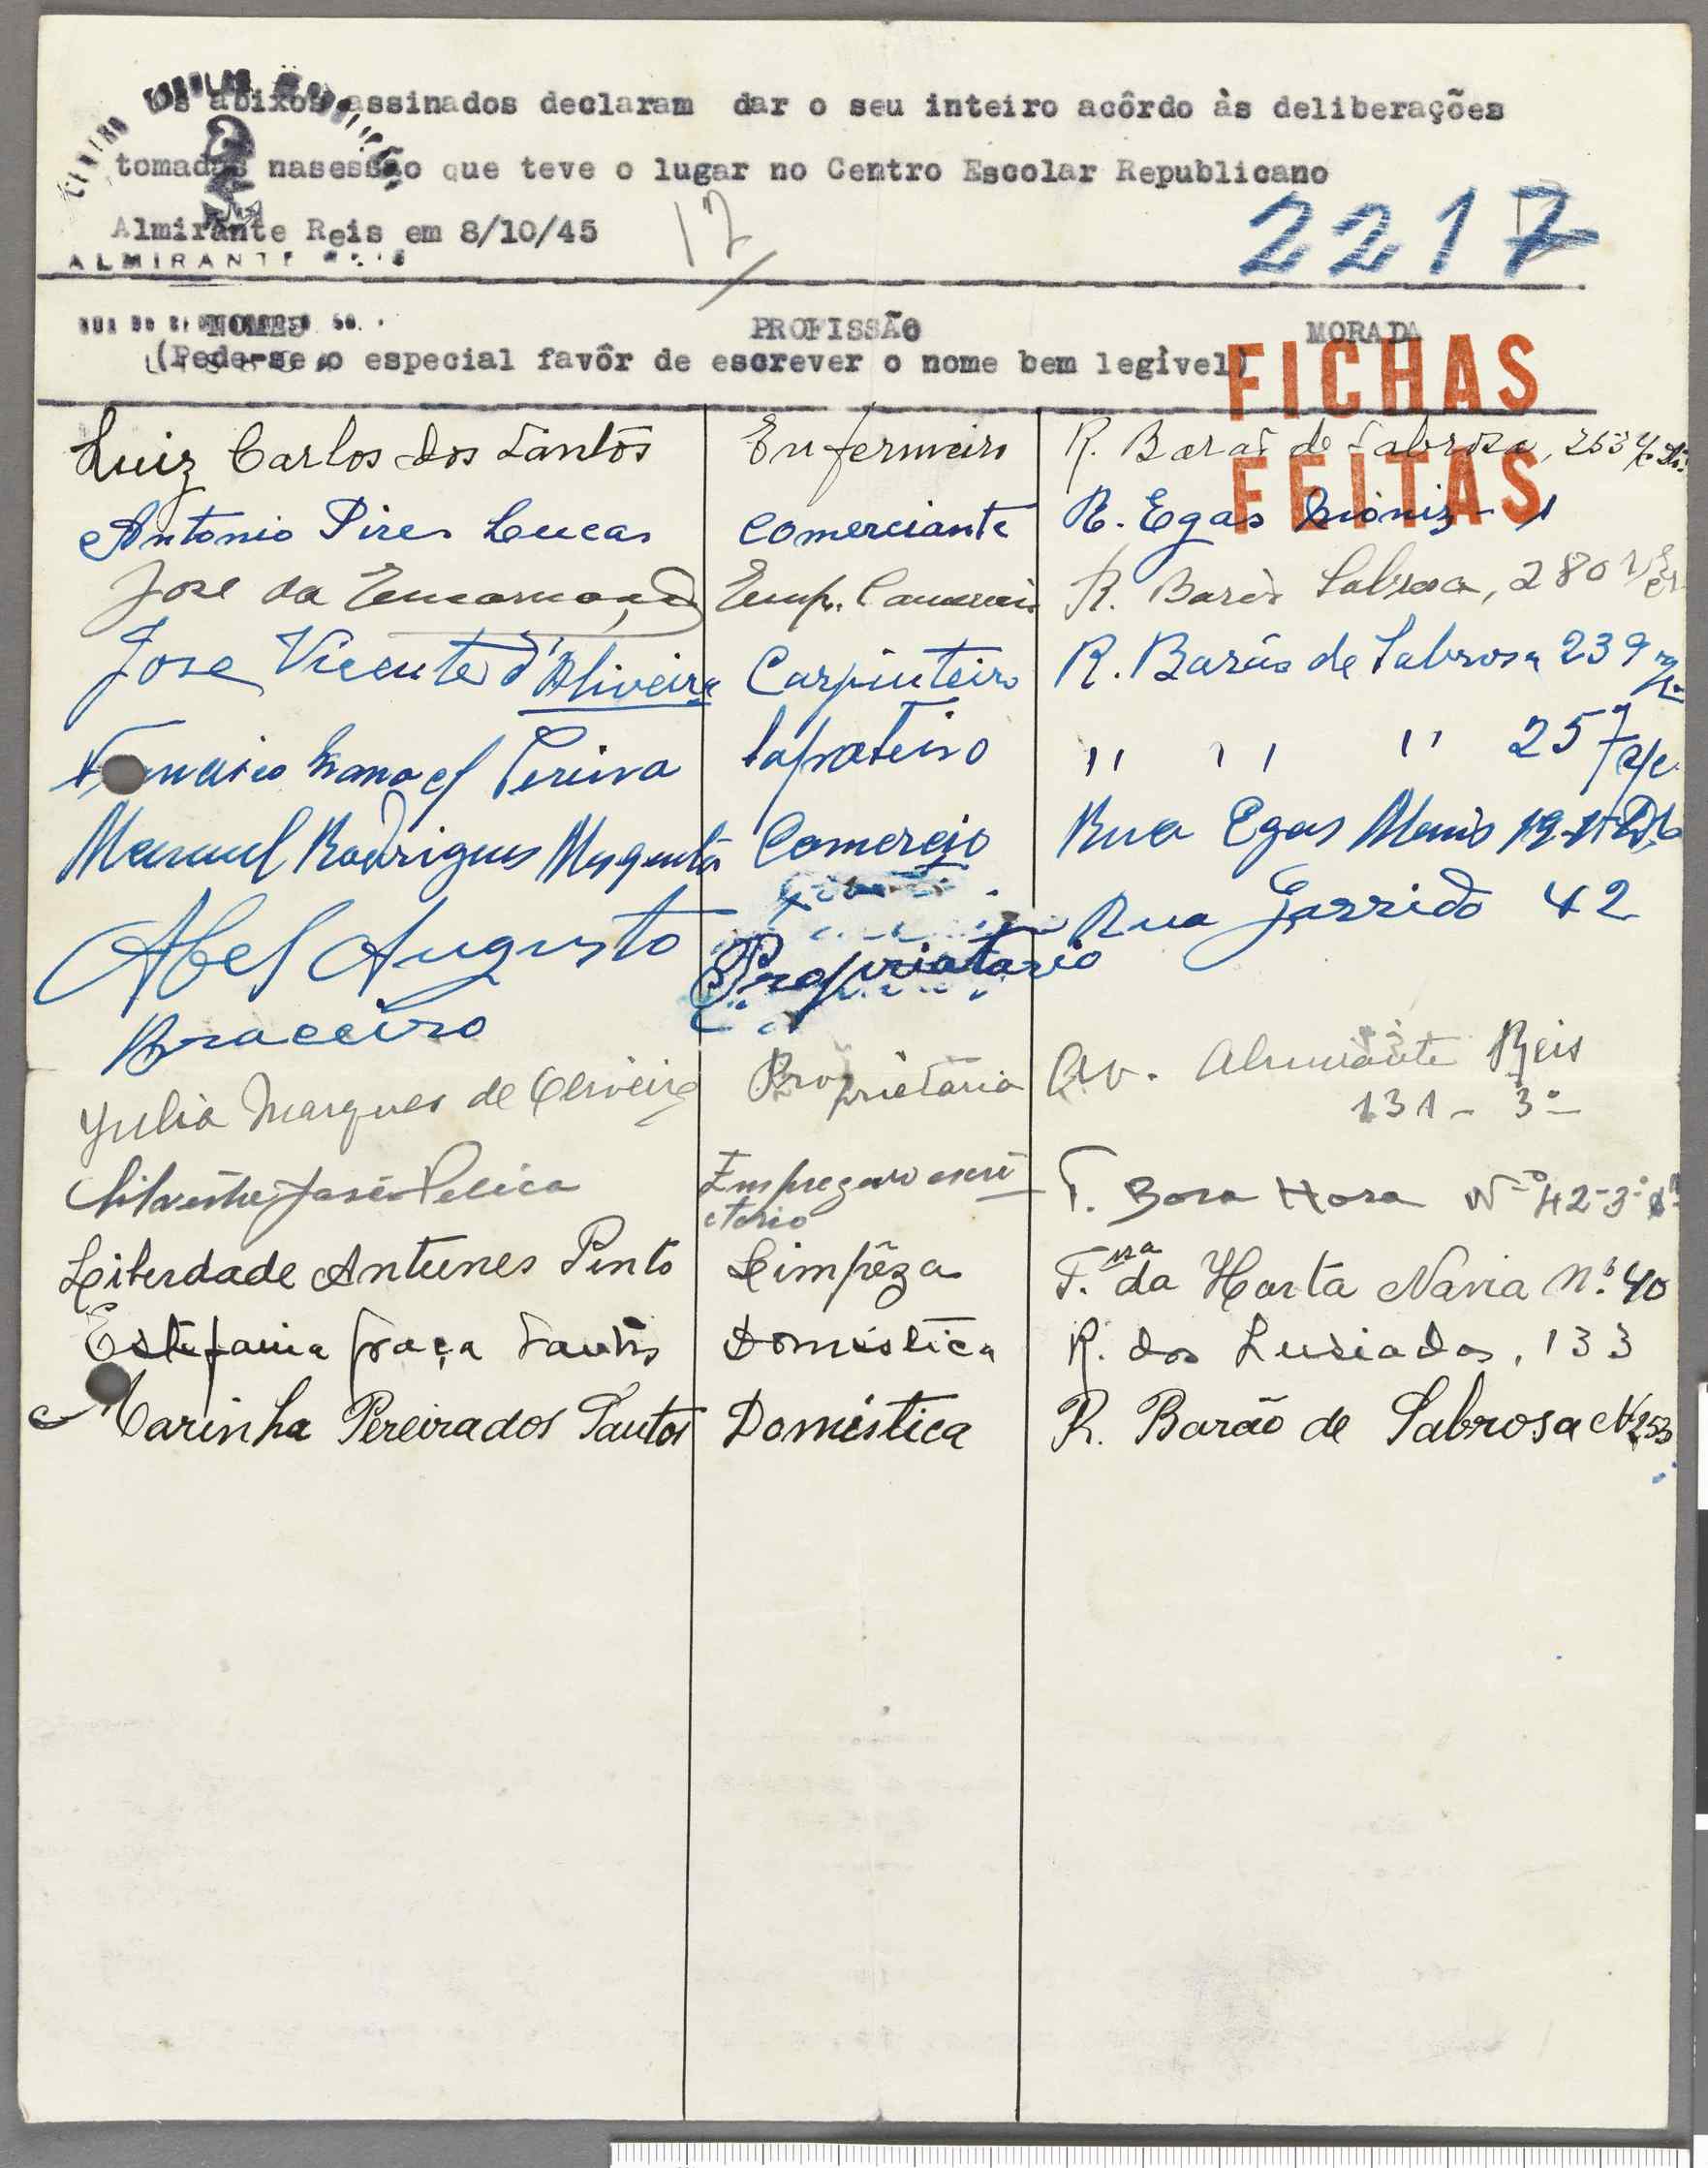 Os abixos assinados declaram dar o seu inteiro acôrdo às deliberações
tomadas nasessão que teve o lugar no Centro Escolar Republicano
Almirante Reis em 8/10/45
ALMIRANTE REIS
12
2217
NOMES PROFISSÃO MORADA
(Pede-se o especial favôr de escrever o nome bem legìvel)
FICHAS
FEITAS
Luiz Carlos dos Santos Enfermeiro R. Barão de Sabrosa, 253
Antonio Pires Lucas Comerciante R. Egas Moniz - 1
Jose da Encarnação Emp. Comercio R. Barão Sabrosa, 280
Jose Vicente d'Oliveira Carpinteiro R. Barão de Sabrosa 239
Francisco Manoel Pereira Sapateiro " " " 257
Manuel Rodrigues Comercio Rua Egas Moniz 19
Abel Augusto Propriatario Rua Garrido 42
Braceiro
Julia Marques de Oliveira Proprietaria Av. Almirante Reis
131 - 3º
Silvestre José Pelica Empregado escri
ctorio
T. Boa Hora Nº 42-3º
Liberdade Antunes Pinto Limpêza T.ssa da Horta Navia N.º 40
Estefania Graça Santos Doméstica R. dos Lusiadas, 133
Marinha Pereira dos Santos Doméstica R. Barão de Sabrosa N 253